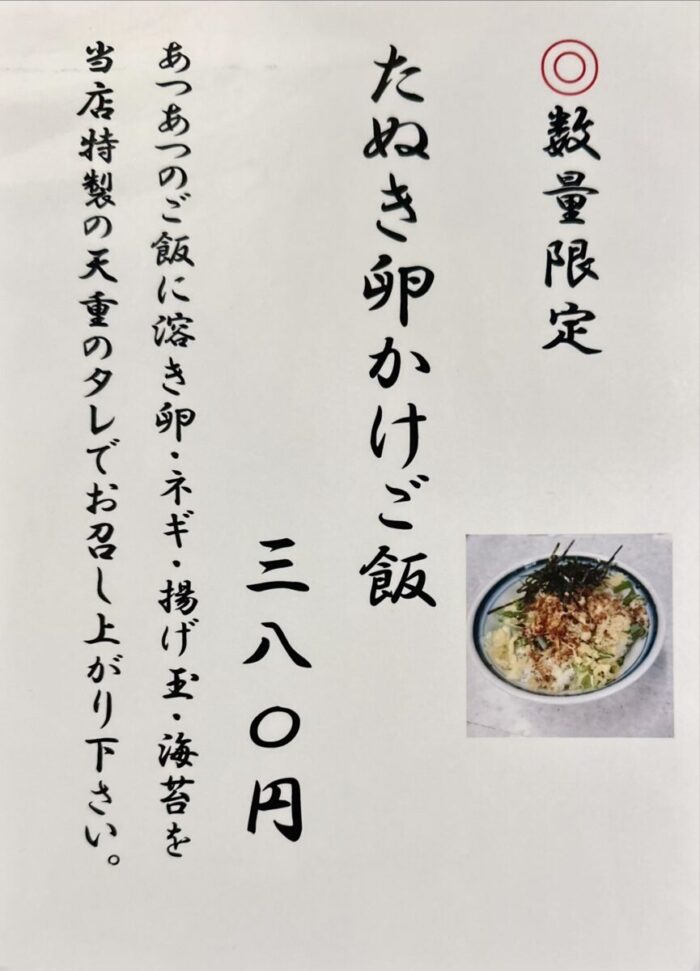 ◎数量限定
たぬき卵かけご飯
三八〇円
あつあつのご飯に溶き卵・ネギ・揚げ玉・海苔を
当店特製の天重のタレでお召し上がり下さい。